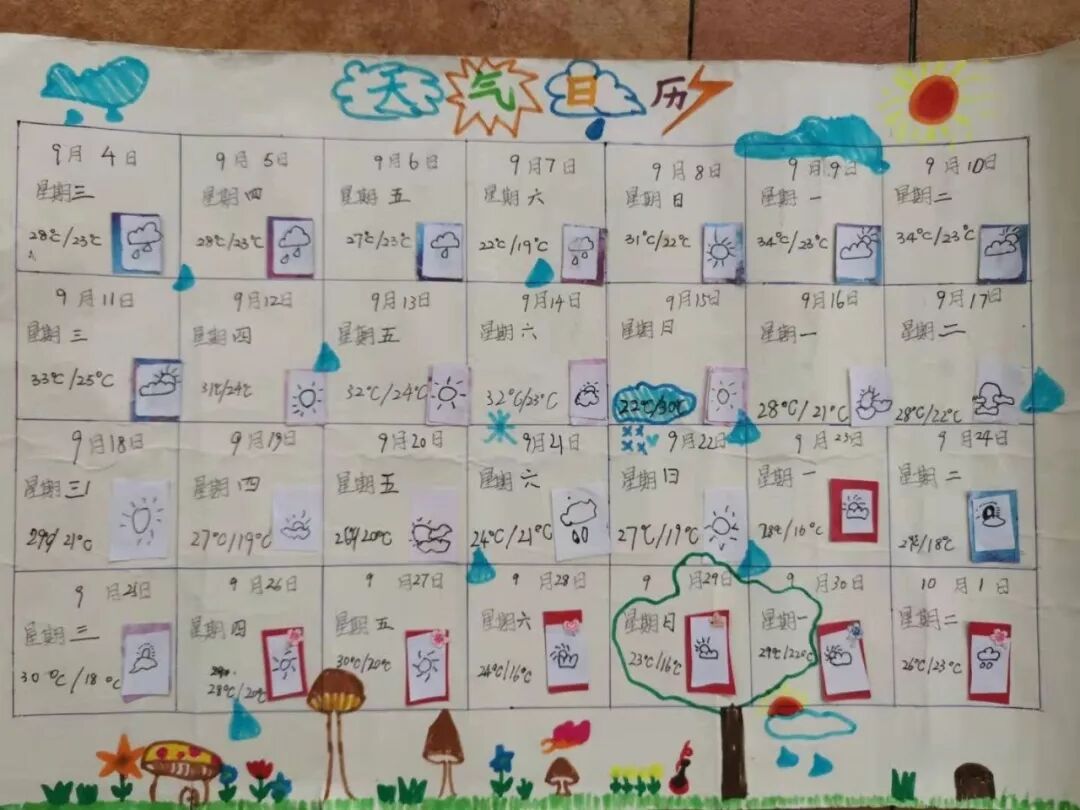 天气日历
9月4日
星期三
28℃/23℃
9月5日
星期四
28℃/23℃
9月6日
星期五
27℃/23℃
9月7日
星期六
22℃/19℃
9月8日
星期日
31℃/22℃
9月9日
星期一
34℃/23℃
9月10日
星期二
34℃/23℃
9月11日
星期三
33℃/25℃
9月12日
星期四
31℃/24℃
9月13日
星期五
32℃/24℃
9月14日
星期六
32℃/23℃
9月15日
星期日
22℃/30℃
9月16日
星期一
28℃/21℃
9月17日
星期二
28℃/22℃
9月18日
星期三
21℃
9月19日
星期四
27℃/19℃
9月20日
星期五
20℃
9月21日
星期六
24℃/21℃
9月22日
星期日
27℃/19℃
9月23日
星期一
/16℃
9月24日
星期二
/18℃
9月25日
星期三
30℃/18℃
9月26日
星期四
28℃/20℃
9月27日
星期五
30℃/20℃
9月28日
星期六
/16℃
9月29日
星期日
23℃/16℃
9月30日
星期一
29℃/22℃
10月1日
星期二
26℃/23℃